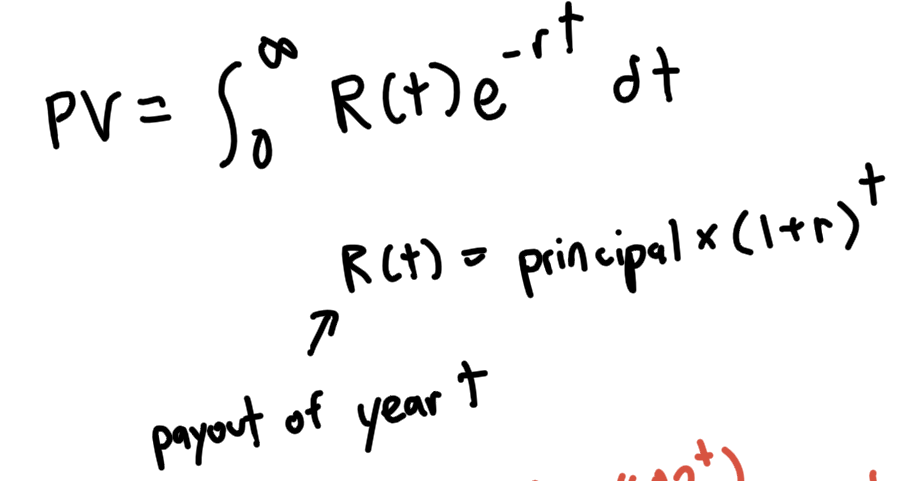 PV = ∫₀^∞ R(t)e^{-rt} dt
R(t) = principal × (1+r)^t
payout of year t